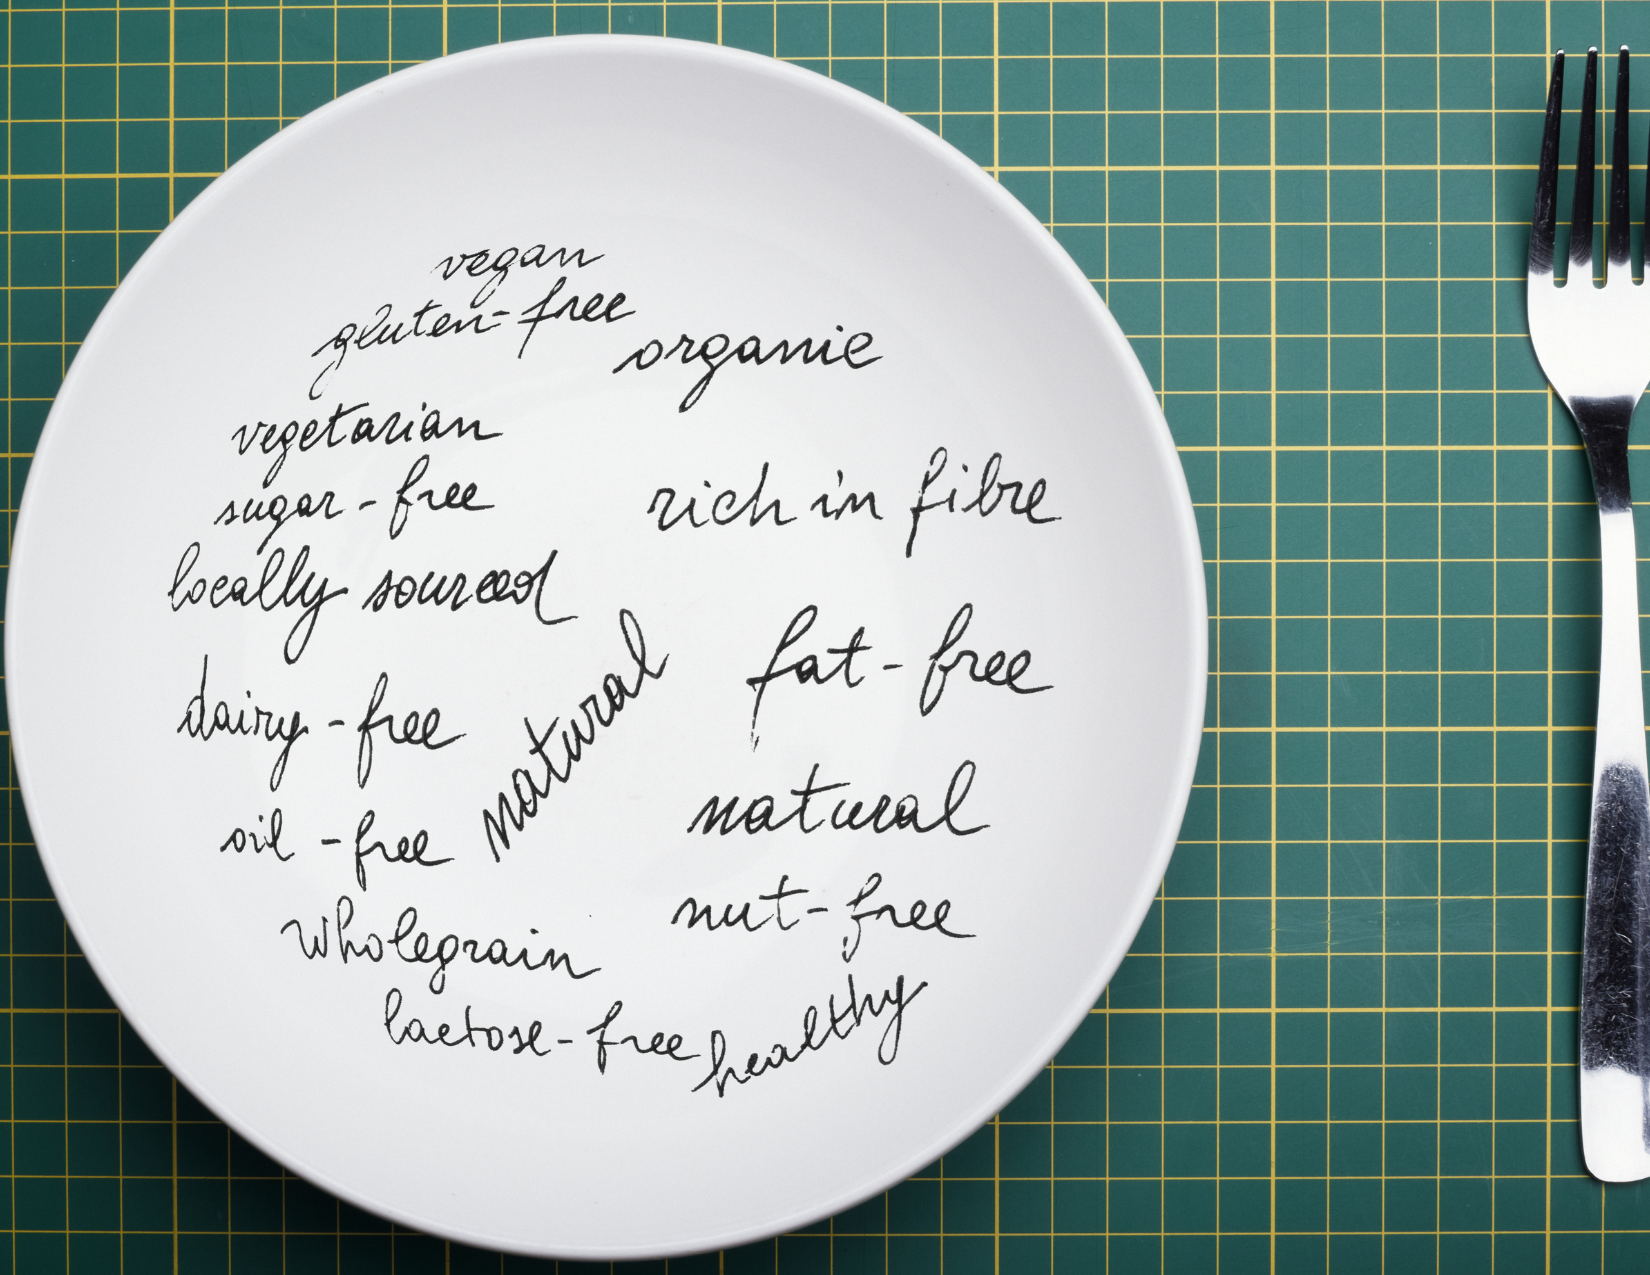 vegan
gluten-free
organic
vegetarian
sugar-free
rich in fibre
locally sourced
natural
fat-free
dairy-free
natural
oil-free
nut-free
wholegrain
lactose-free
healthy